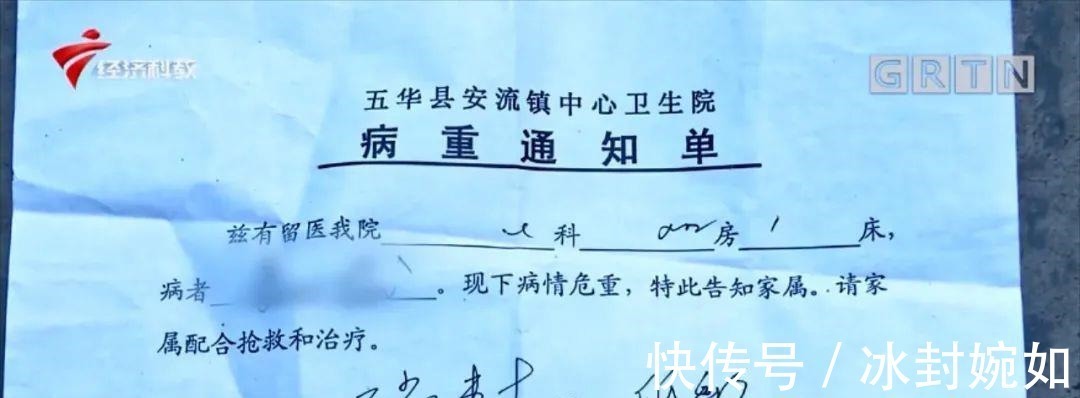 经济科教
GRTN
五华县安流镇中心卫生院
病重通知单
兹有留医我院 科 房 1 床，
病者 。现下病情危重，特此告知家属。请家
属配合抢救和治疗。
快传号 / 冰封婉如